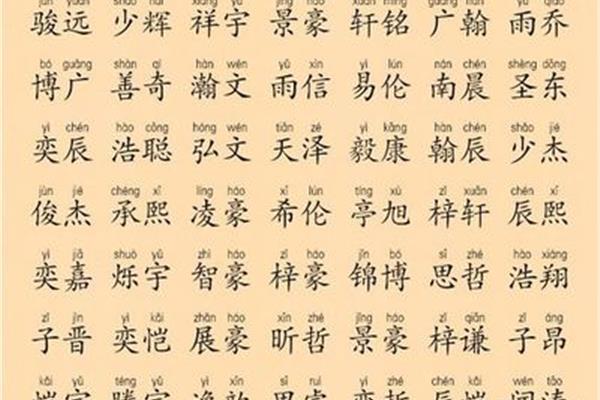 jùn yuǎn shào huī xiáng yǔ jǐng háo xuān míng guǎng hàn yǔ qiáo
骏远 少辉 祥宇 景豪 轩铭 广翰 雨乔
bó guǎng shàn qí hàn wén yǔ xìn yì lún nán chén shèng dōng
博广 善奇 瀚文 雨信 易伦 南晨 圣东
yì chén hào cōng hóng wén tiān zé yì kāng hàn chén shǎo jié
奕辰 浩聪 弘文 天泽 毅康 翰辰 少杰
jùn jié chéng xī líng háo xī lún tíng xù zǐ xuān chén xī
俊杰 承熙 凌豪 希伦 亭旭 梓轩 辰熙
yì jiā shuò yǔ zhì háo zǐ háo jǐn bó sī zhé hào xiáng
奕嘉 烁宇 智豪 梓豪 锦博 思哲 浩翔
zǐ jìn yì kǎi zhǎn háo xīn zhé jǐng háo zǐ qiān zǐ áng
子晋 奕恺 展豪 昕哲 景豪 梓谦 子昂
kǎi yǔ téng yǔ yì xīn sī ruì yì zhé chén kǎi wén tāo